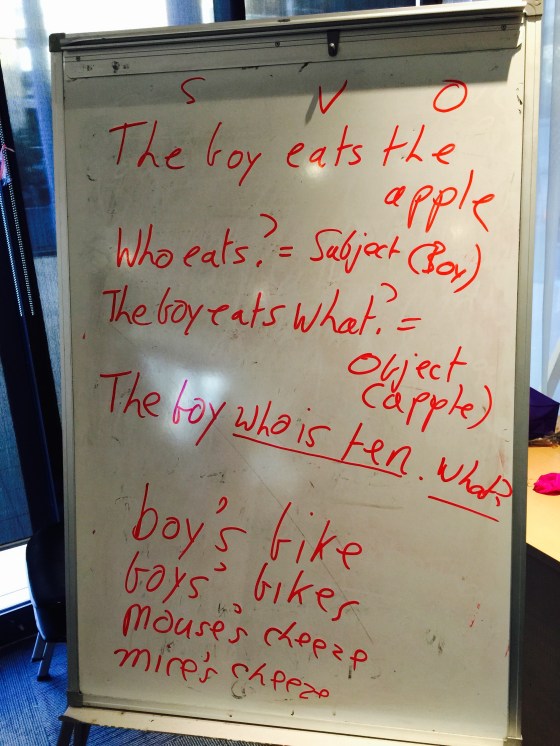 S V O
The boy eats the
apple
Who eats? = Subject (Boy)
The boy eats what? =
Object
(apple)
The boy who is ten. What?
boy's bike
boys' bikes
mouse's cheeze
mice's cheeze